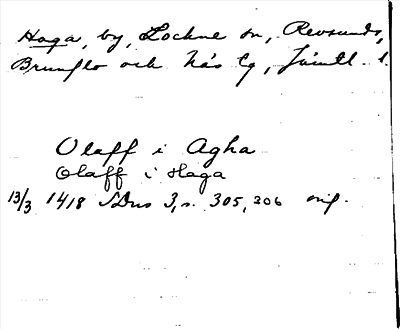 Haga, by, Lockne sn, Revsunds,
Brunflo och Näs tg, Jämtl. l.
Olaff i Agha
Olaff i Haga
13/3 1418 SDns 3, s. 305, 306 orig.